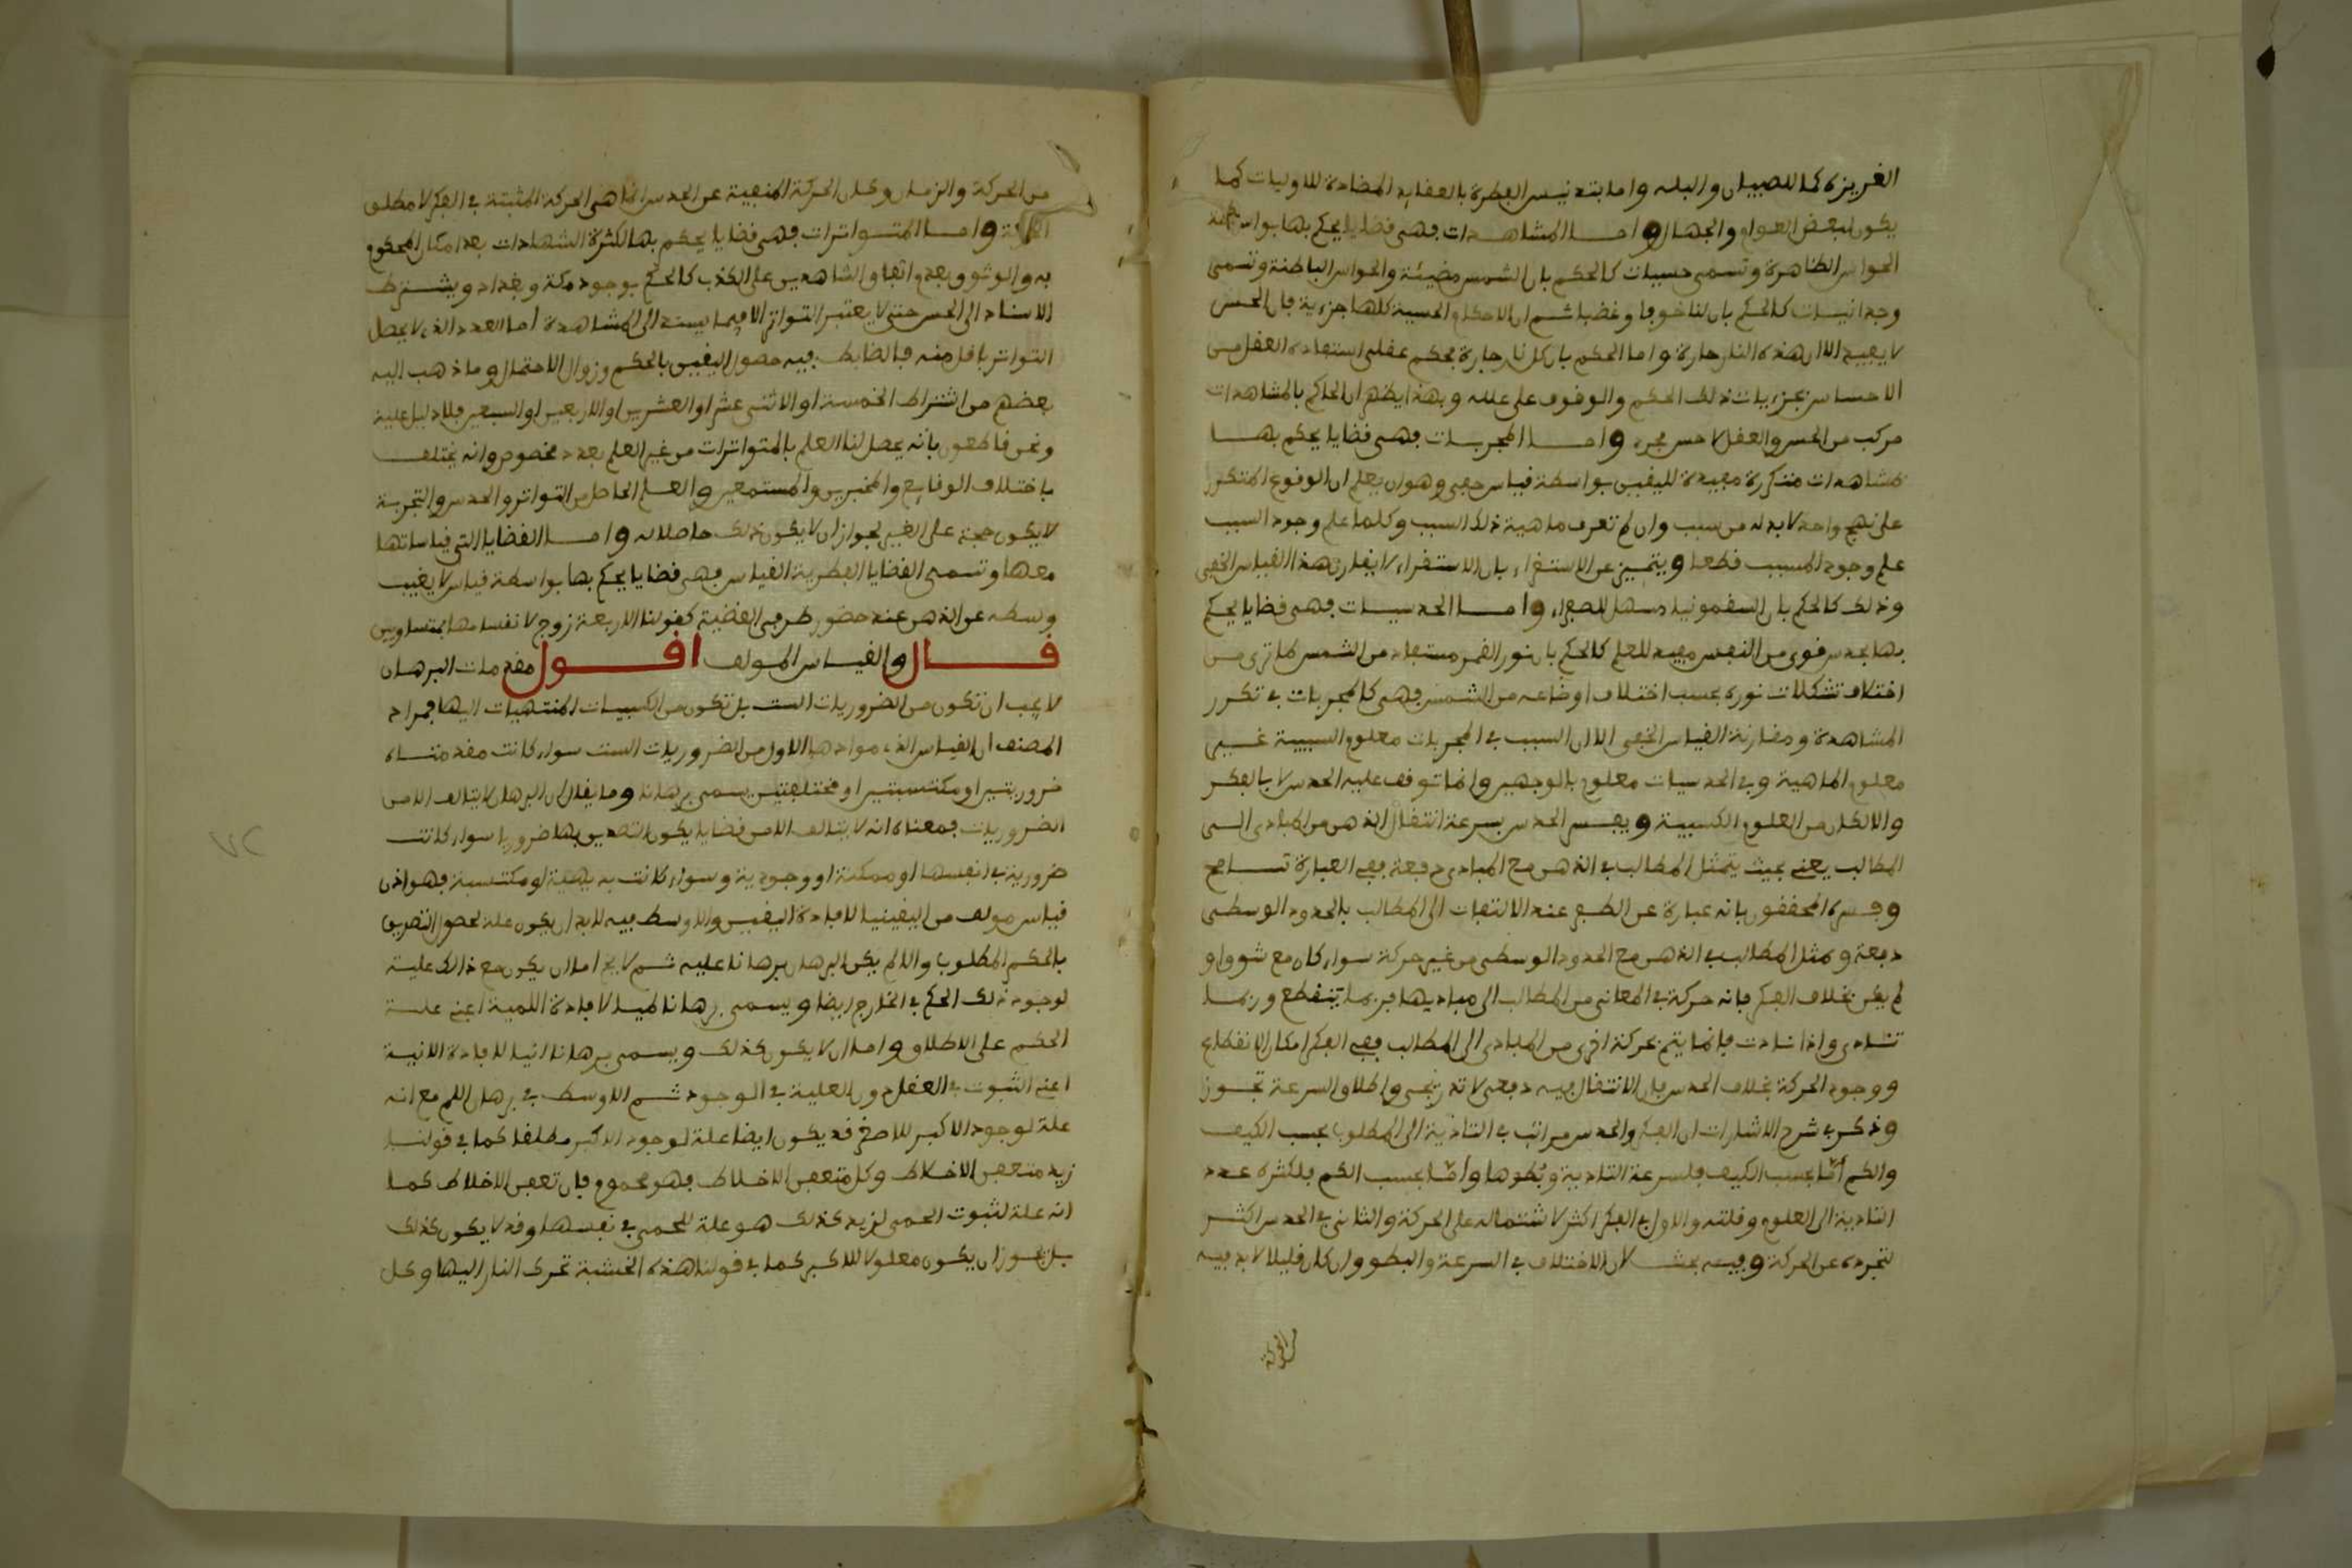 الغريزة كما للصبيان والبله واما بتدنيس الفطرة بالعقايد المضادة للاوليات كما
يكون لبعض العوام والجهال واما المشاهدات فهى قضايا يحكم بها بواسطة
الحواس الظاهرة وتسمى حسيات كالحكم بان الشمس مضيئة والحواس الباطنة وتسمى
وجدانيات كالحكم بان لنا خوفا وغضبا ثم ان الاحكام الحسية كلها جزءية فان الحس
لا يفيد الا ان هذه النار حارة واما الحكم بان كل نار حارة فحكم عقلى استفاده العقل من
الاحساس بجزءيات ذلك الحكم والوقوف على علله وبهذا يظهر ان الحاكم بالمشاهدات
مركب من الحس والعقل لا حس مجرد واما المجربات فهى قضايا يحكم بها
بمشاهدات متكررة مفيدة لليقين بواسطة قياس خفى وهو ان يعلم ان الوقوع المتكرر
على نهج واحد لا بد له من سبب وان لم تعرف ماهية ذلك السبب وكلما علم وجود السبب
علم وجود المسبب قطعا ويتميز عن الاستقراء بان الاستقراء لا يقارن هذا القياس الخفى
وذلك كالحكم بان السقمونيا مسهل للصفراء واما الحدسيات فهى قضايا يحكم
بها بحدس قوى من النفس مفيد للعلم كالحكم بان نور القمر مستفاد من الشمس لما ترى من
اختلاف تشكلات نوره بحسب اختلاف اوضاعه من الشمس فهى كالمجربات في تكرر
المشاهدة ومقارنة القياس الخفى الا ان السبب في المجربات معلوم السببية غير
معلوم الماهية وفي الحدسيات معلوم بالوجهين وانما توقف عليه الحدس لا بالفكر
والا لكان من العلوم الكسبية ويفسر الحدس بسرعة انتقال الذهن من المبادى الى
المطالب يعنى بحيث يتمثل المطالب في الذهن مع المبادى دفعة ففي العبارة تسامح
وفسره المحققون بانه عبارة عن الظفر عند الالتفات الى المطالب بالحدود الوسطى
دفعة وتمثل المطالب في الذهن مع الحدود الوسطى من غير حركة سواء كان مع شوق او
لم يكن بخلاف الفكر فانه حركة في المعانى من المطالب الى مباديها فربما ينقطع وربما
تتادى واذا تادت فانما يتم بحركة اخرى من المبادى الى المطالب ففي الفكر امكان الانقطاع
ووجود الحركة بخلاف الحدس فان الانتقال فيه دفعى لا تدريجى واطلاق السرعة تجوز
وذكر في شرح الاشارات ان الفكر والحدس مراتب في التادية الى المطلوب بحسب الكيف
والكم أمّا بحسب الكيف فلسرعة التادية وبُطؤها وأمّا بحسب الكم فلكثرة عدد
التادية الى العلوم وقلته والاول في الفكر اكثر لاشتماله على الحركة والثانى في الحدس اكثر
لتجرده عن الحركة وفيه بحث لان الاختلاف في السرعة والبطؤ وان كان قليلا لا بد فيه
من الحركة
من الحركة والزمان وكان الحركة المنفية عن الحدس انما هى الحركة المثبتة في الفكر لا مطلق
الحركة واما المتواترات فهى قضايا يحكم بها لكثرة الشهادات بعد امكان المحكوم
به والوثوق بعدم اتفاق الشاهدين على الكذب كالحكم بوجود مكة وبغداد ويشترط
الاسناد الى الحس حتى لا يعتبر التواتر الا فيما يستند الى المشاهدة أما العدد الذي لا يحصل
التواتر باقل منه فالضابط فيه حصول اليقين بالحكم وزوال الاحتمال وما ذهب اليه
بعضهم من اشتراط الخمسة او الاثنى عشر او العشرين او الاربعين او السبعين فلا دليل عليه
ونحن قاطعون بأنه يحصل لنا العلم بالمتواترات من غير العلم بعدد مخصوص وانه يختلف
باختلاف الوقايع والمخبرين والمستمعين والعلم الحاصل من التواتر والحدس والتجربة
لا يكون حجة على الغير لجواز ان لا يكون ذلك حاصلا له واما القضايا التى قياساتها
معها وتسمى القضايا الفطرية القياس فهى قضايا يحكم بها بواسطة قياس لا يغيب
وسطه عن الذهن عند حضور طرفى القضية كقولنا الاربعة زوج لانقسامها بمتساويين
قال والقياس المولف اقول مقدمات البرهان
لا يجب ان تكون من الضروريات الست بل تكون من الكسبيات المنتهيات اليها فمراد
المصنف ان القياس الذي موادها الاول من الضروريات الست سواء كانت مقدمتاه
ضروريتين او مكتسبتين او مختلفتين يسمى برهانا وما يقال ان البرهان لا يتالف الا من
الضروريات فمعناه انه لا يتالف الا من قضايا يكون التصديق بها ضروريا سواء كانت
ضرورية في انفسها او ممكنة او وجودية وسواء كانت بديهية او مكتسبة فهو اذن
قياس مولف من اليقينيات لافادة اليقين والاوسط فيه لا بد ان يكون علة لحصول التصديق
بالحكم المطلوب والا لم يكن البرهان برهانا عليه ثم لا يخ اما ان يكون مع ذالك علية
لوجود ذلك الحكم في الخارج ايضا ويسمى برهانا لميا لافادة اللمية اعنى علية
الحكم على الاطلاق واما ان لا يكون كذلك ويسمى برهانا انيا لافادة الانية
اعنى الثبوت في العقل دون العلية في الوجود ثم الاوسط في برهان اللم مع انه
علة لوجود الاكبر للاصغر قد يكون ايضا علة لوجود الاكبر مطلقا كما في قولنا
زيد متعفن الاخلاط وكل متعفن الاخلاط فهو محموم فان تعفن الاخلاط كما
انه علة لثبوت الحمى لزيد كذلك هو علة للحمى في نفسها وقد لا يكون كذلك
بل يجوز ان يكون معلولا للاكبر كما في قولنا هذه الخشبة تحرك النار اليها وكل